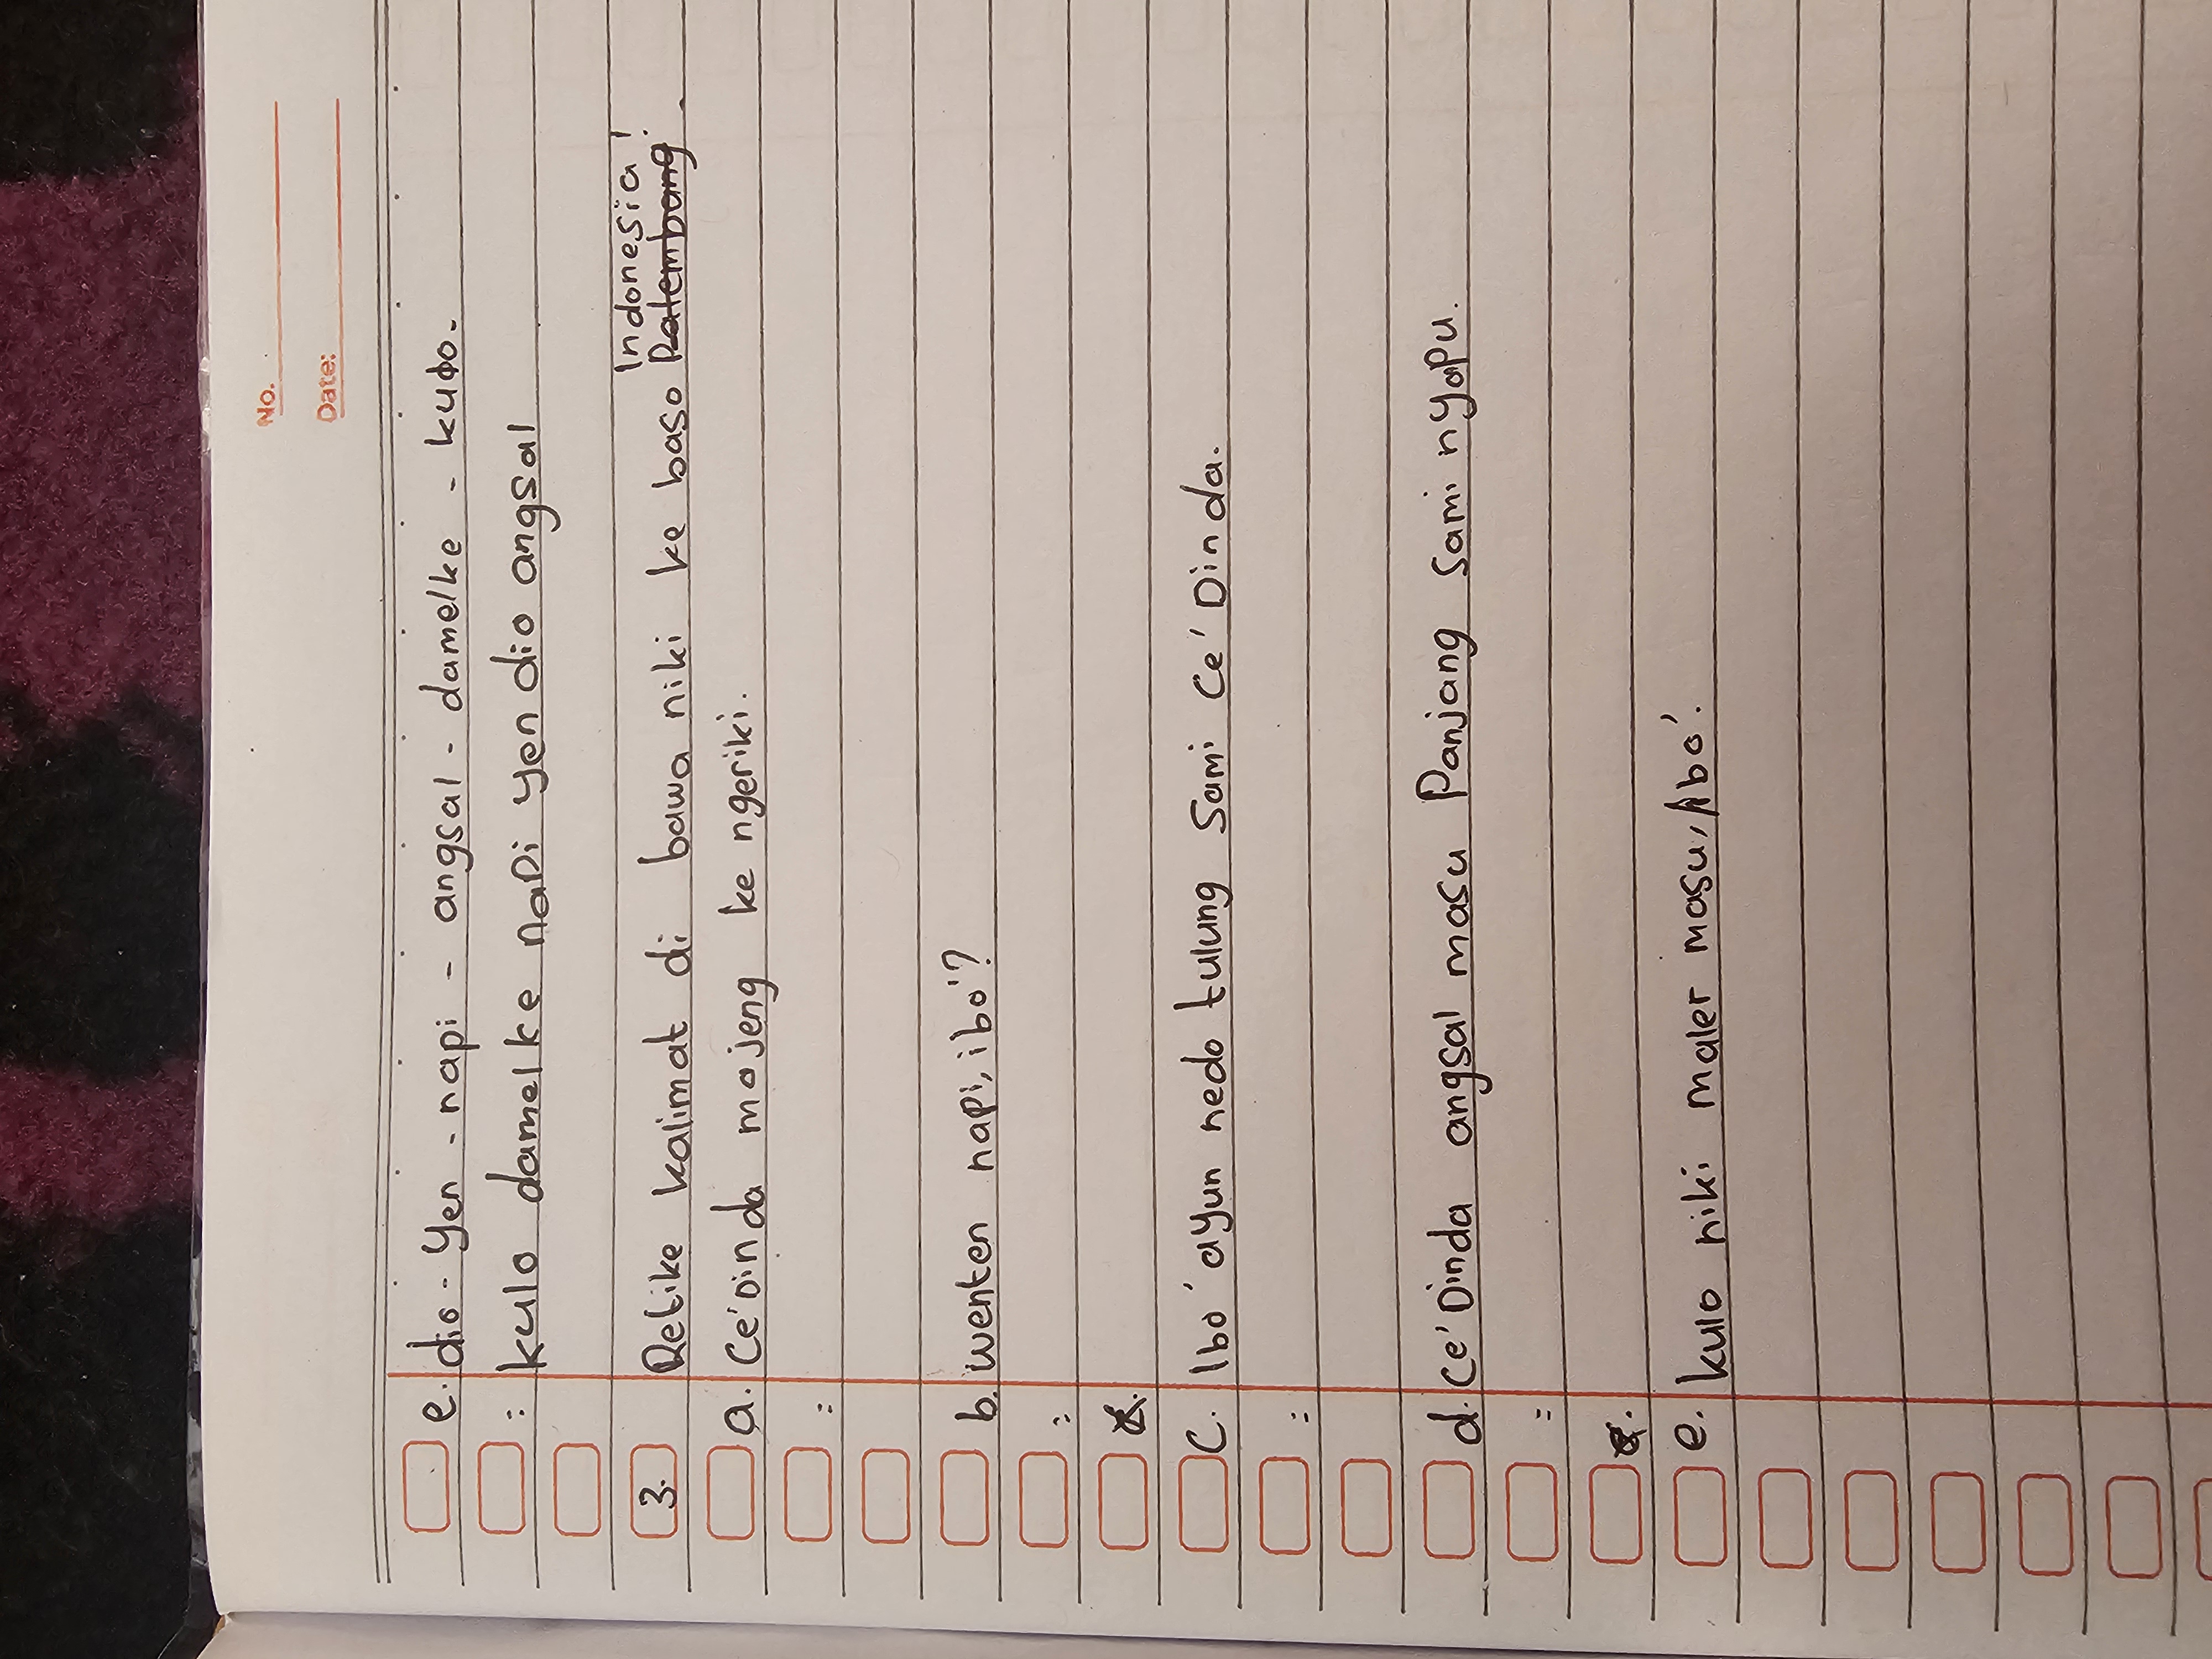 No.
Date:
e. dio - Yen - napi - angsal - damelke - kulo.
: kulo damelke napi yen dio angsal
Indonesia!
3. Retike kalimat di bawa niki ke baso Palembang.
a. Ce'Dinda mojeng ke ngeriki.
:
b. wenten napi, ibo'?
:
C. Ibo' ayun nedo tulung Sami Ce' Dinda.
:
d. Ce' Dinda angsal masu Panjang Sami nyapu.
:
e. kulo niki maler masu, Ibo'.